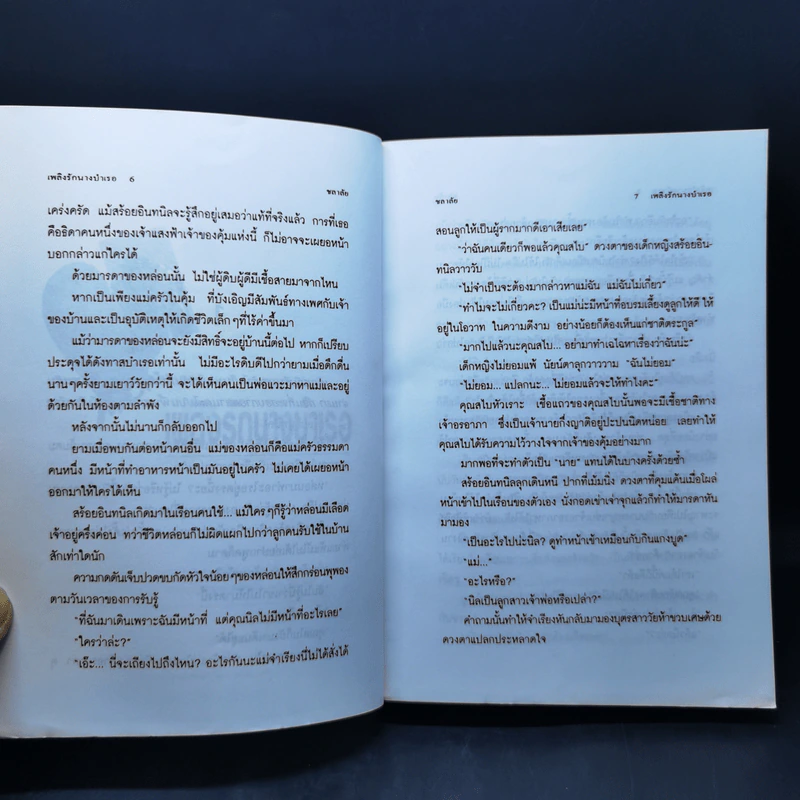 เพลิงรักนางบำเรอ 6
ชลาลัย
เคร่งครัด แม้สร้อยอินทนิลจะรู้สึกอยู่เสมอว่าแท้ที่จริงแล้ว การที่เธอ
คือธิดาคนหนึ่งของเจ้าแสงฟ้าเจ้าของคุ้มแห่งนี้ ก็ไม่อาจจะเผยอหน้า
บอกกล่าวแก่ใครได้
ด้วยมารดาของหล่อนนั้น ไม่ใช่ผู้ดิบผู้ดีมีเชื้อสายมาจากไหน
หากเป็นเพียงแม่ครัวในคุ้ม ที่บังเอิญมีสัมพันธ์ทางเพศกับเจ้า
ของบ้านและเป็นอุบัติเหตุให้เกิดชีวิตเล็กๆที่ไร้ค่าขึ้นมา
แม้ว่ามารดาของหล่อนจะยังมีสิทธิ์จะอยู่บ้านนี้ต่อไป หากก็เปรียบ
ประดุจได้ดังทาสบำเรอเท่านั้น ไม่มีอะไรดิบดีไปกว่ายามเมื่อดึกดื่น
นานๆครั้งยามเยาว์วัยกว่านี้ จะได้เห็นคนเป็นพ่อแวะมาหาแม่และอยู่
ด้วยกันในห้องตามลำพัง
หลังจากนั้นไม่นานก็กลับออกไป
ยามเมื่อพบกันต่อหน้าคนอื่น แม่ของหล่อนก็คือแม่ครัวธรรมดา
คนหนึ่ง มีหน้าที่ทำอาหารหน้าเป็นมันอยู่ในครัว ไม่เคยได้เผยอหน้า
ออกมาให้ใครได้เห็น
สร้อยอินทนิลเกิดมาในเรือนคนใช้... แม้ใครๆก็รู้ว่าหล่อนมีเลือด
เจ้าอยู่ครึ่งค่อน ทว่าชีวิตหล่อนก็ไม่ผิดแผกไปกว่าลูกคนรับใช้ในบ้าน
สักเท่าใดนัก
ความกดดันเจ็บปวดขบกัดหัวใจน้อยๆของหล่อนให้สึกกร่อนพุพอง
ตามวันเวลาของการรับรู้
"ที่ฉันมาเดินเพราะฉันมีหน้าที่ แต่คุณนิลไม่มีหน้าที่อะไรเลย"
"ใครว่าล่ะ?"
"เอ๊ะ... นี่จะเถียงไปถึงไหน? อะไรกันนะแม่จำเรียงนี่ไม่ได้สั่งได้
ชลาลัย
7 เพลิงรักนางบำเรอ
สอนลูกให้เป็นผู้รากมากดีเอาเสียเลย"
"ว่าฉันคนเดียวก็พอแล้วคุณสไบ" ดวงตาของเด็กหญิงสร้อยอิน-
ทนิลวาววับ
"ไม่จำเป็นจะต้องมากล่าวหาแม่ฉัน แม่ฉันไม่เกี่ยว"
"ทำไมจะไม่เกี่ยวคะ? เป็นแม่น่ะมีหน้าที่อบรมเลี้ยงดูลูกให้ดี ให้
อยู่ในโอวาท ในความดีงาม อย่างน้อยก็ต้องเห็นแก่ชาติตระกูล"
"มากไปแล้วนะคุณสไบ... อย่ามาทำเฉไฉหาเรื่องว่าฉันน่ะ"
เด็กหญิงไม่ยอมแพ้ นัยน์ตาลุกวาววาม "ฉันไม่ยอม"
"ไม่ยอม... แปลกนะ... ไม่ยอมแล้วจะให้ทำไงคะ"
คุณสไบหัวเราะ เชื้อแถวของคุณสไบนั้นพอจะมีเชื้อชาติทาง
เจ้าอรอาภา ซึ่งเป็นเจ้านายกึ่งญาติอยู่ปะปนนิดหน่อย เลยทำให้
คุณสไบได้รับความไว้วางใจจากเจ้าของคุ้มอย่างมาก
มากพอที่จะทำตัวเป็น "นาย" แทนได้ในบางครั้งด้วยซ้ำ
สร้อยอินทนิลลุกเดินหนี ปากที่เม้มนิ่ง ดวงตาที่คุมแค้นเมื่อโผล่
หน้าเข้าไปในเรือนของตัวเอง นั่งกอดเข่าเจ่าจุกแล้วก็ทำให้มารดาหัน
มามอง
"เป็นอะไรไปน่ะนิล? ดูทำหน้าเข้าเหมือนกับกินแกงบูด"
"แม่..."
"อะไรหรือ?"
"นิลเป็นลูกสาวเจ้าพ่อหรือเปล่า?"
คำถามนั้นทำให้จำเรียงหันกลับมามองบุตรสาววัยห้าขวบเศษด้วย
ดวงตาแปลกประหลาดใจ